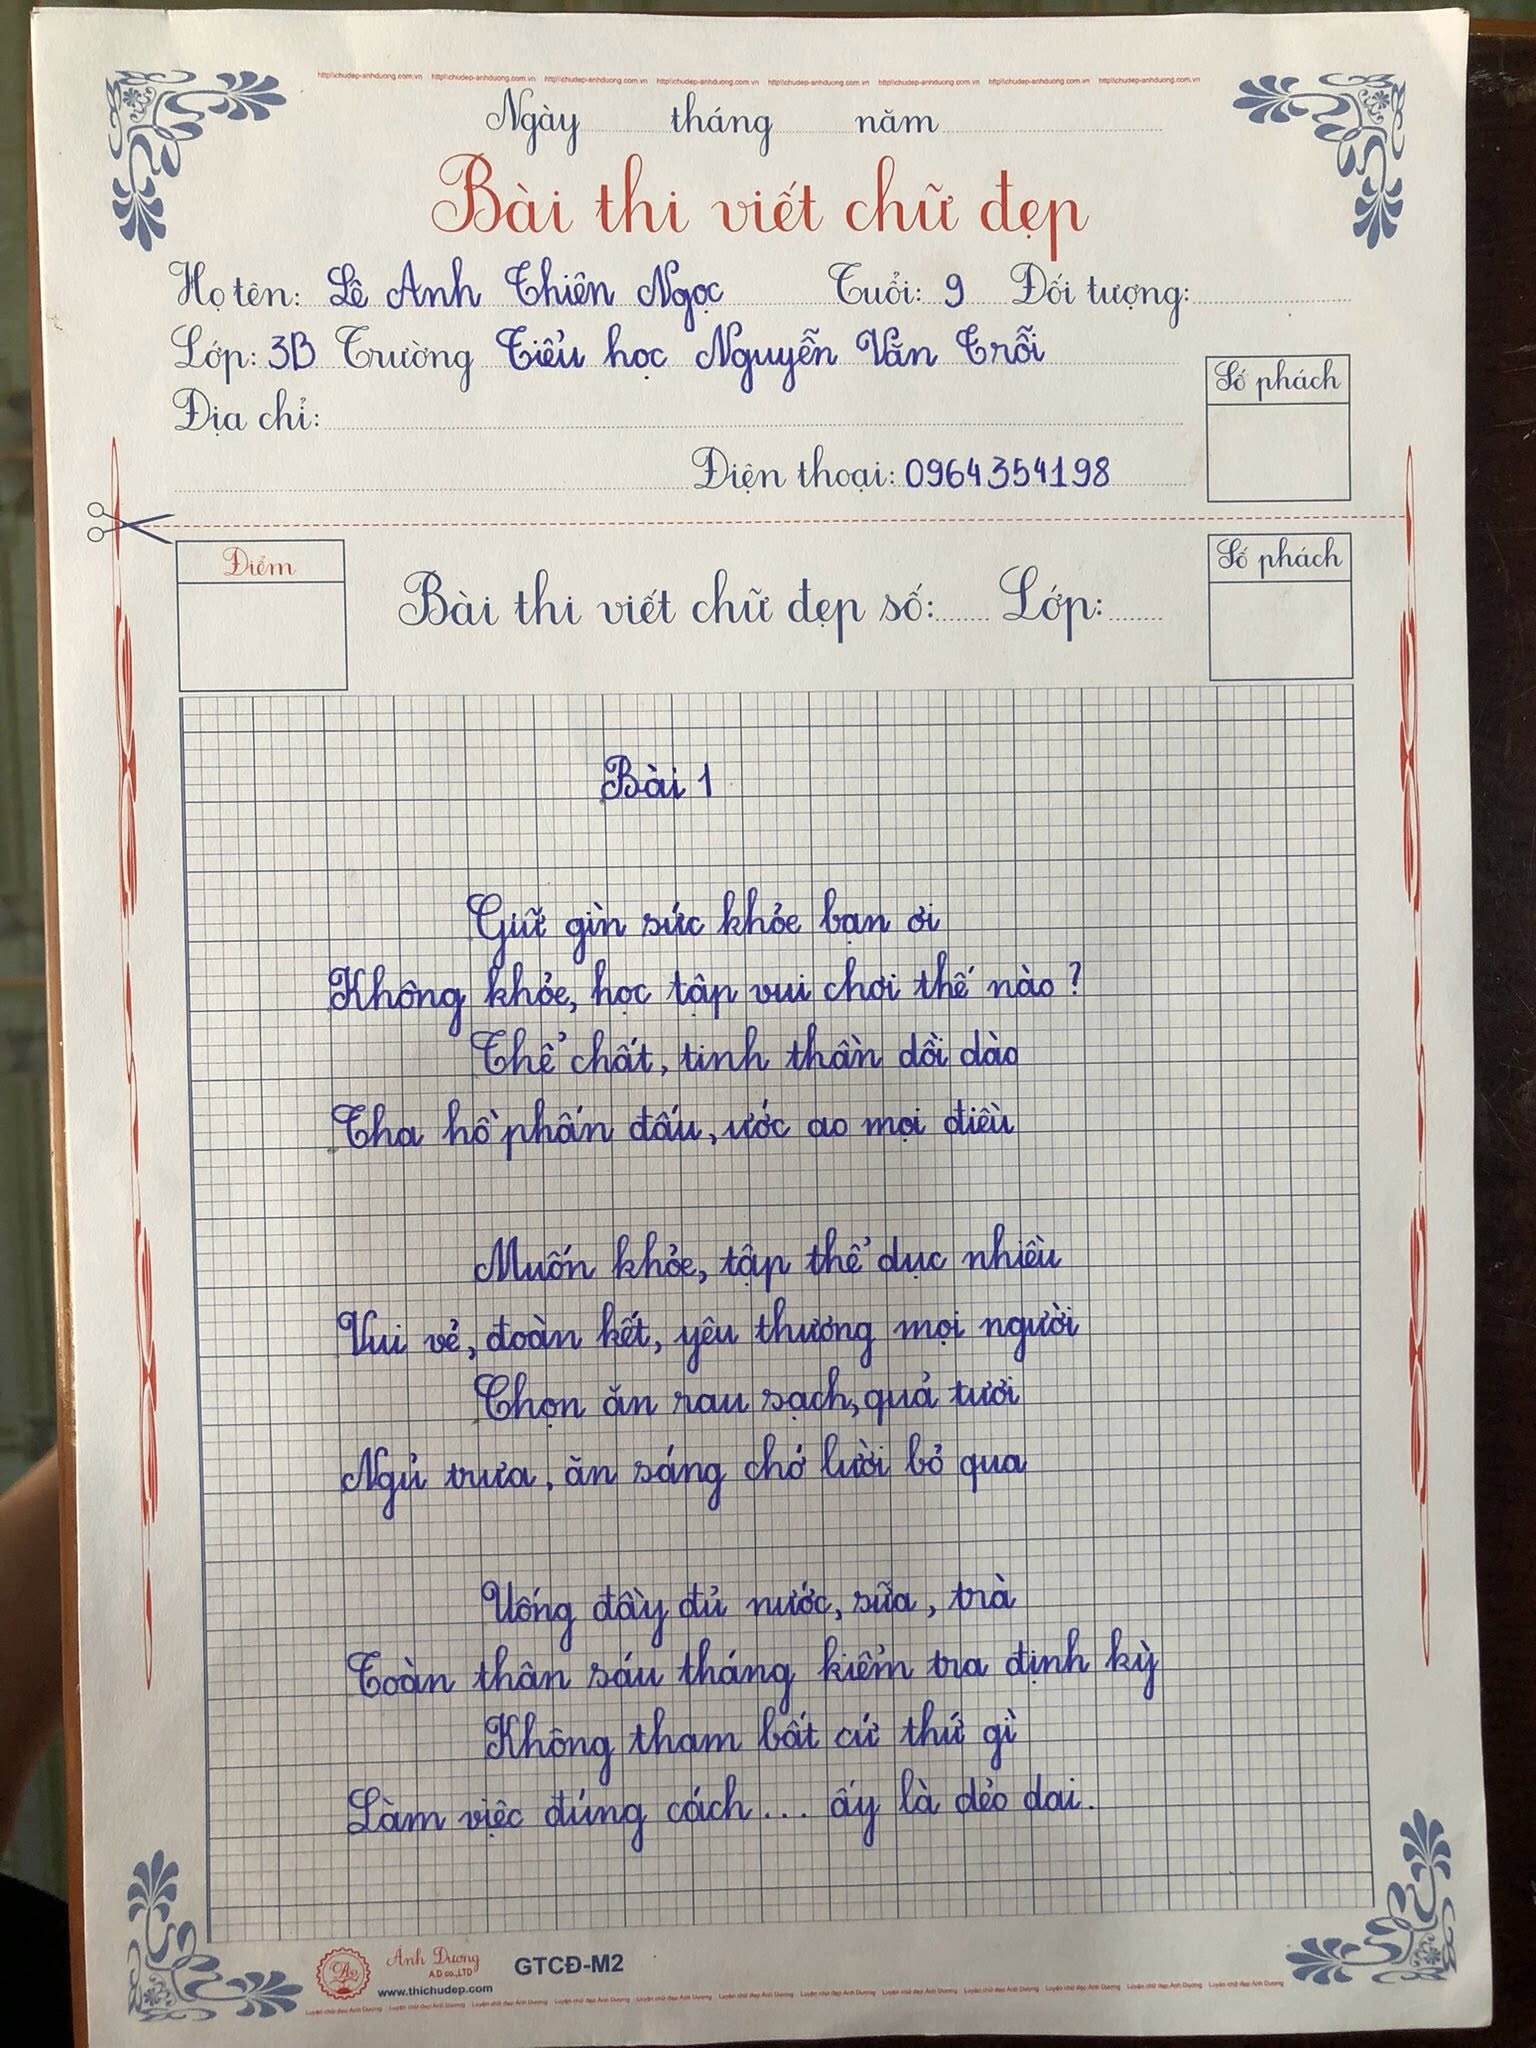 http\\chudep-anhduong.com.vn http\\chudep-anhduong.com.vn http\\chudep-anhduong.com.vn http\\chudep-anhduong.com.vn http\\chudep-anhduong.com.vn http\\chudep-anhduong.com.vn http\\chudep-anhduong.com.vn http\\chudep-anhduong.com.vn
Ngày tháng năm
Bài thi viết chữ đẹp
Họ tên: Lê Anh Thiên Ngọc Tuổi: 9 Đối tượng:
Lớp: 3B Trường Tiểu học Nguyễn Văn Trỗi
Số phách
Địa chỉ:
Điện thoại: 0964354198
Điểm
Bài thi viết chữ đẹp số: Lớp:
Số phách
Bài 1
Giữ gìn sức khỏe bạn ơi
Không khỏe, học tập vui chơi thế nào?
Thể chất, tinh thần dồi dào
Tha hồ phấn đấu, ước ao mọi điều
Muốn khỏe, tập thể dục nhiều
Vui vẻ, đoàn kết, yêu thương mọi người
Chọn ăn rau sạch, quả tươi
Ngủ trưa, ăn sáng chớ lười bỏ qua
Uống đầy đủ nước, sữa, trà
Toàn thân sáu tháng kiểm tra định kỳ
Không tham bất cứ thứ gì
Làm việc đúng cách... ấy là dẻo dai.
Ánh Dương
A.D co.,LTD
GTCĐ-M2
www.thichudep.com
Luyện chữ đẹp Ánh Dương Luyện chữ đẹp Ánh Dương Luyện chữ đẹp Ánh Dương Luyện chữ đẹp Ánh Dương Luyện chữ đẹp Ánh Dương Luyện chữ đẹp Ánh Dương Luyện chữ đẹp Ánh Dương Luyện chữ đẹp Ánh Dương Luyện chữ đẹp Ánh Dương Luyện chữ đẹp Ánh Dương Luyện chữ đẹp Ánh Dương Luyện chữ đẹp Ánh Dương